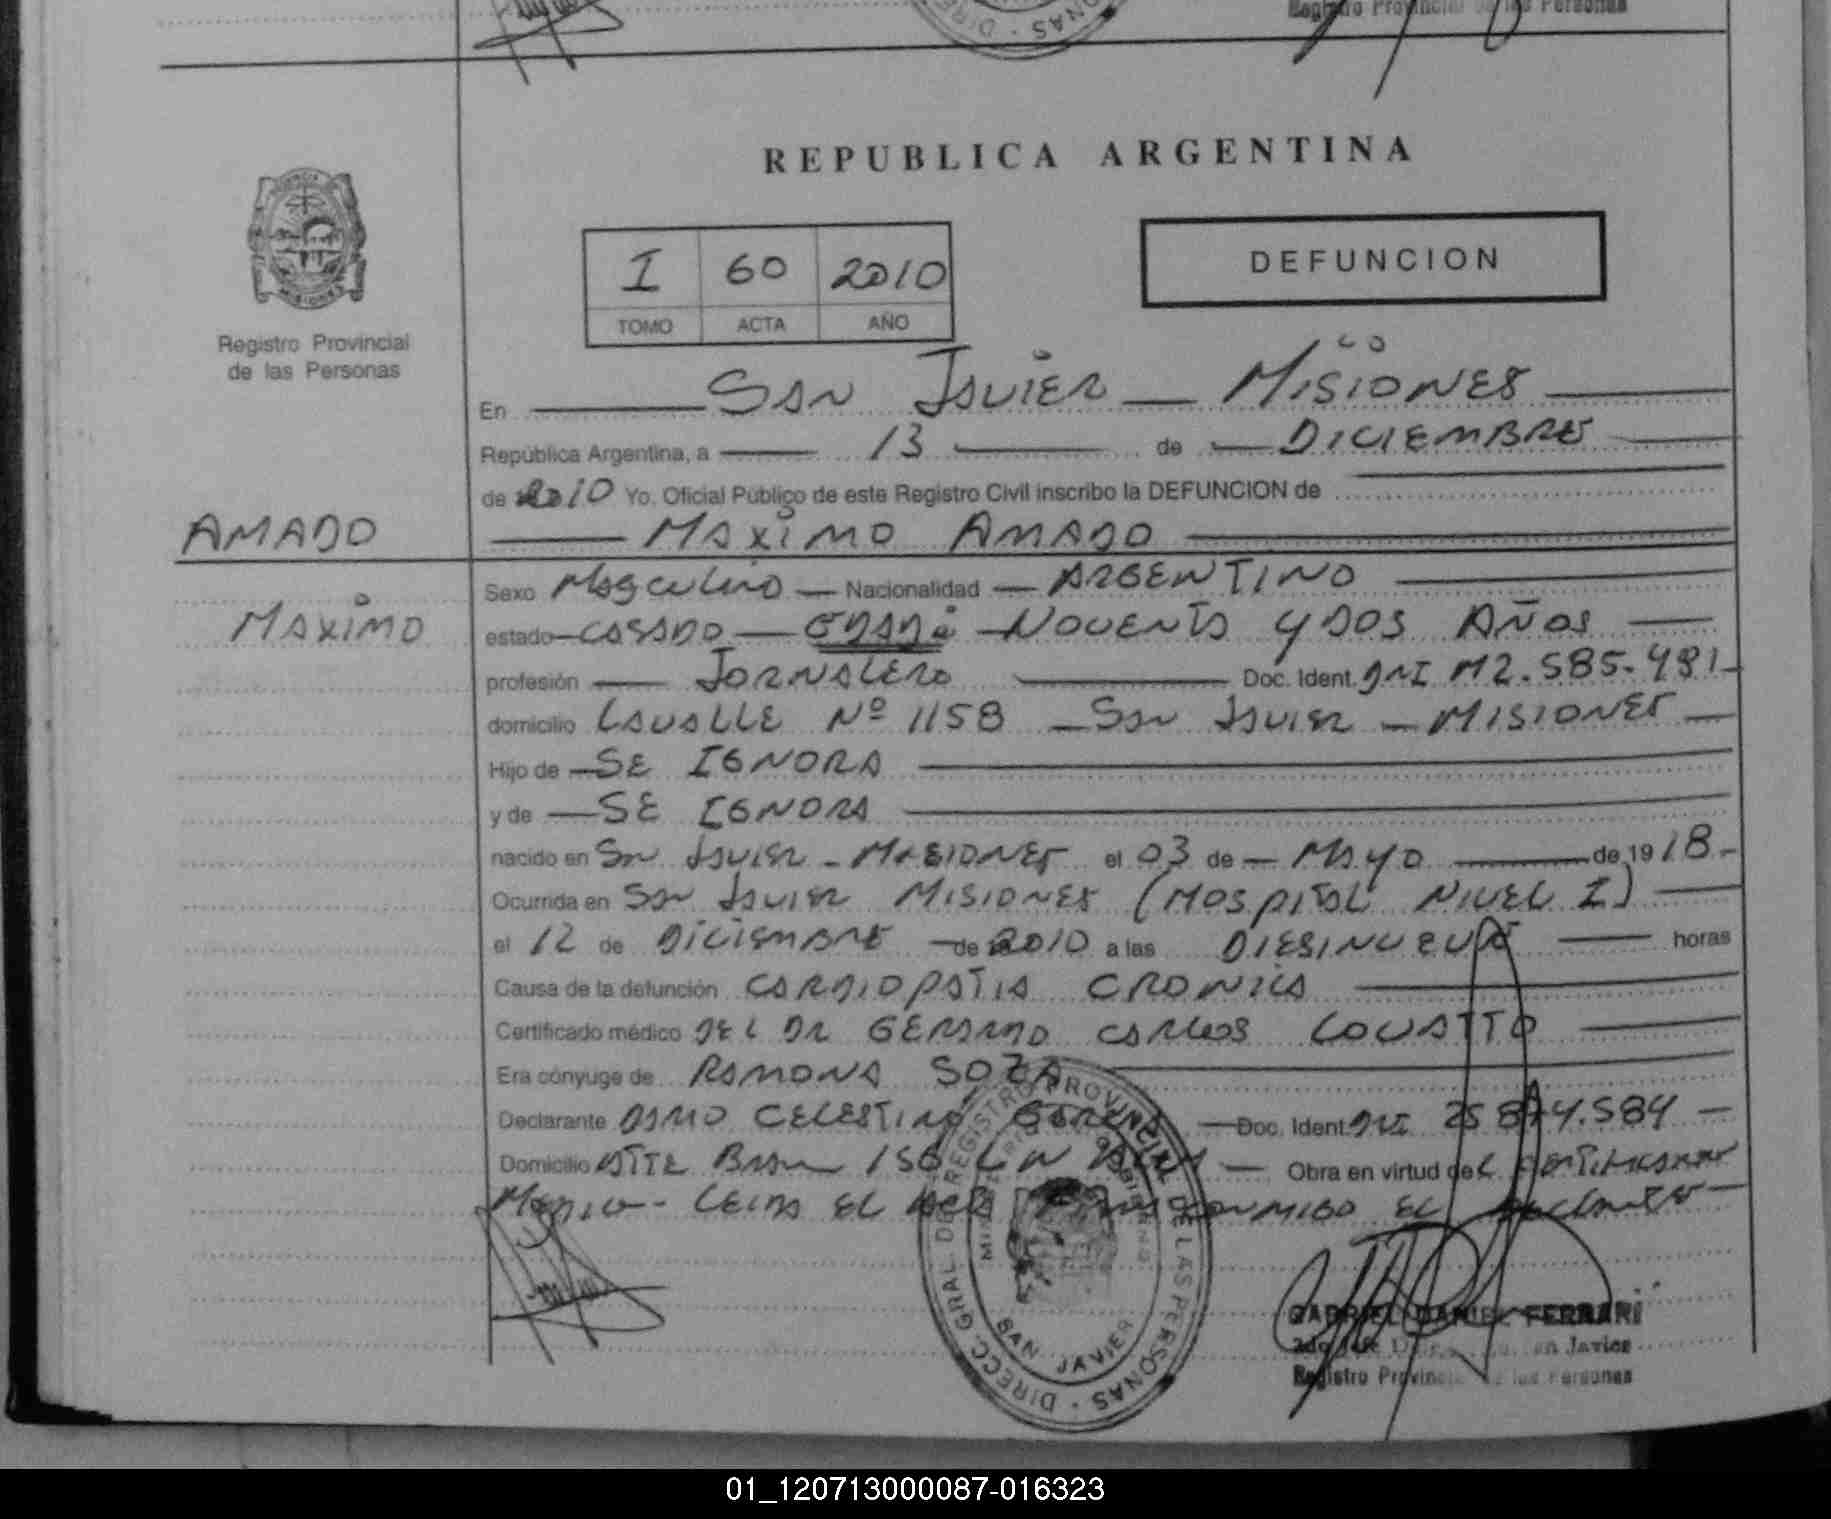 Registro Provincial de las Personas
DIRECC ONAS
REPUBLICA ARGENTINA
PROVINCIA MISIONES
Registro Provincial
de las Personas
I 60 2010
TOMO ACTA AÑO
DEFUNCION
En SAN JAVIER — MISIONES
República Argentina, a 13 de DICIEMBRE
de 2010 Yo, Oficial Público de este Registro Civil inscribo la DEFUNCION de
AMADO
MAXIMO AMADO
Sexo Masculino — Nacionalidad — ARGENTINO
MAXIMO
estado — CASADO — EDAD: — NOVENTA Y DOS AÑOS
profesión — JORNALERO — Doc. Ident. DNI M2.585.491
domicilio LAVALLE Nº 1158 — SAN JAVIER — MISIONES
Hijo de — SE IGNORA
y de — SE IGNORA
nacido en SAN JAVIER - MISIONES el 03 de — MAYO — de 1918.-
Ocurrida en SAN JAVIER MISIONES (HOSPITAL NIVEL I)
el 12 de DICIEMBRE — de 2010 a las DIESINUEVE — horas
Causa de la defunción CARDIOPATIA CRONICA
Certificado médico DEL DR GERARDO CARLOS LOVATTO
Era cónyuge de RAMONA SOZA
Declarante CELESTINO — Doc. Ident. DNI 25 874.584 —
Domicilio ATTE BROWN 150 — Obra en virtud del CERTIFICADO
MEDICO - LEIDA EL ACTA FIRMA CONMIGO EL declarante —
DIRECC. GRAL. DEL REGISTRO PROVINCIAL DE LAS PERSONAS
SAN JAVIER
GABRIEL DANIEL FERRARI
2do Jefe San Javier
Registro Provincial de las Personas
01_120713000087-016323